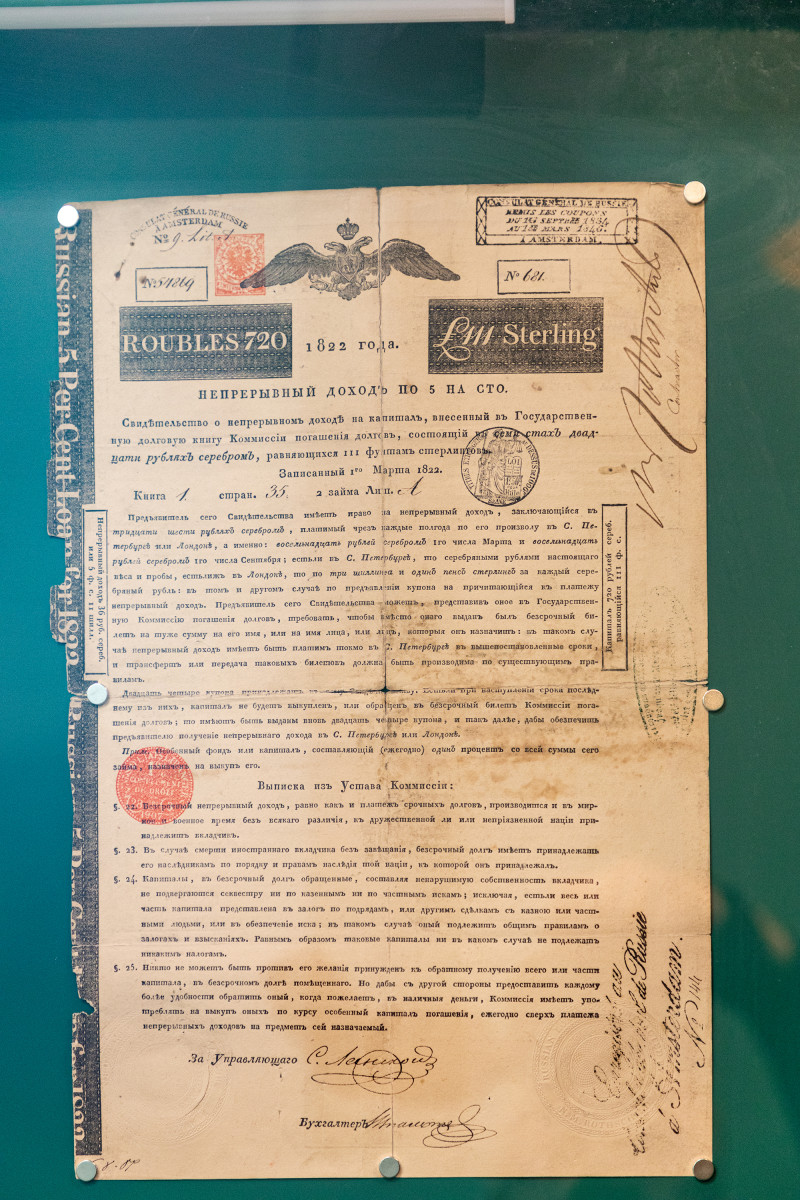 CONSULAT GÉNÉRAL DE RUSSIE
À AMSTERDAM
CONSULAT GÉNÉRAL DE RUSSIE
REMIS LES COUPONS
À AMSTERDAM.
No 681.
ROUBLES 720
1822 года.
£111 Sterling
НЕПРЕРЫВНЫЙ ДОХОДЪ ПО 5 НА СТО.
Свидѣтельство о непрерывномъ доходѣ на капиталъ, внесенный въ Государствен-
ную долговую книгу Коммиссіи погашенія долговъ, состоящій въ семи стахъ двад-
цати рубляхъ серебромъ, равняющихся 111 фунтамъ стерлинговъ.
Записанный 1го Марта 1822.
Книга 1. стран. 35. 2 займа Лит. А
Предъявитель сего Свидѣтельства имѣетъ право на непрерывный доходъ, заключающійся въ
тридцати шести рубляхъ серебромъ, платимый чрезъ каждые полгода по его произволу въ С. Пе-
тербургѣ или Лондонѣ, а именно: восемьнадцать рублей серебромъ 1го числа Марта и восемьнадцать
рублей серебромъ 1го числа Сентября; естьли въ С. Петербургѣ, то серебряными рублями настоящаго
вѣса и пробы, естьлижъ въ Лондонѣ, то по три шиллинга и одинъ пенсъ стерлингъ за каждый сере-
бряный рубль: въ томъ и другомъ случаѣ по предъявленіи купона на причитающійся къ платежу
непрерывный доходъ. Предъявитель сего Свидѣтельства можетъ, представивъ оное въ Государствен-
ную Коммиссію погашенія долговъ, требовать, чтобы вмѣсто онаго выданъ былъ безсрочный би-
летъ на туже сумму на его имя, или на имя лица, или лицъ, которыя онъ назначитъ: въ такомъ слу-
чаѣ непрерывный доходъ имѣетъ быть платимъ токмо въ С. Петербургѣ въ вышепоставленные сроки,
и трансфертъ или передача таковыхъ билетовъ должна быть производима по существующимъ пра-
виламъ.
Двадцать четыре купона
нему изъ нихъ, капиталъ не будетъ выкупленъ, или обращенъ въ безсрочный билетъ Коммиссіи пога-
шенія долговъ; то имѣютъ быть выданы вновь двадцать четыре купона, и такъ далѣе, дабы обезпечить
предъявителю полученіе непрерывнаго дохода въ С. Петербургѣ или Лондонѣ.
Особенный фондъ или капиталъ, составляющій (ежегодно) одинъ процентъ со всей суммы сего
займа, назначенъ на выкупъ его.
Выписка изъ Устава Коммиссіи:
§. 22. Безсрочный непрерывный доходъ, равно какъ и платежъ срочныхъ долговъ, производится и въ мир-
ное и военное время безъ всякаго различія, къ дружественной ли или непріязненной націи при-
надлежитъ вкладчикъ.
§. 23. Въ случаѣ смерти иностраннаго вкладчика безъ завѣщанія, безсрочный долгъ имѣетъ принадлежать
его наслѣдникамъ по порядку и правамъ наслѣдія той націи, къ которой онъ принадлежалъ.
§. 24. Капиталы, въ безсрочный долгъ обращенные, составляя ненарушимую собственность вкладчика,
не подвергаются секвестру ни по казеннымъ ни по частнымъ искамъ; исключая, естьли весь или
часть капитала представлена въ залогъ по подрядамъ, или другимъ сдѣлкамъ съ казною или част-
ными людьми, или въ обезпеченіе иска; въ такомъ случаѣ оный подлежитъ общимъ правиламъ о
залогахъ и взысканіяхъ. Равнымъ образомъ таковые капиталы ни въ какомъ случаѣ не подлежатъ
никакимъ налогамъ.
§. 25. Никто не можетъ быть противъ его желанія принужденъ къ обратному полученію всего или части
капитала, въ безсрочномъ долгѣ помѣщеннаго. Но дабы съ другой стороны предоставить каждому
болѣе удобности обратить оный, когда пожелаетъ, въ наличныя деньги, Коммиссія имѣетъ упо-
треблять на выкупъ оныхъ по курсу особенный капиталъ погашенія, ежегодно сверхъ платежа
непрерывныхъ доходовъ на предметъ сей назначаемый.
За Управляющаго
Бухгалтеръ
Непрерывный доходъ 36 руб. сереб.
или 5 ф. с. 11 шилл.
Капиталъ 720 рублей сереб.
равняющійся 111 ф. с.
Russian 5 Per Cent Loan for 1822
Consulat Général de Russie
à Amsterdam.
No 144